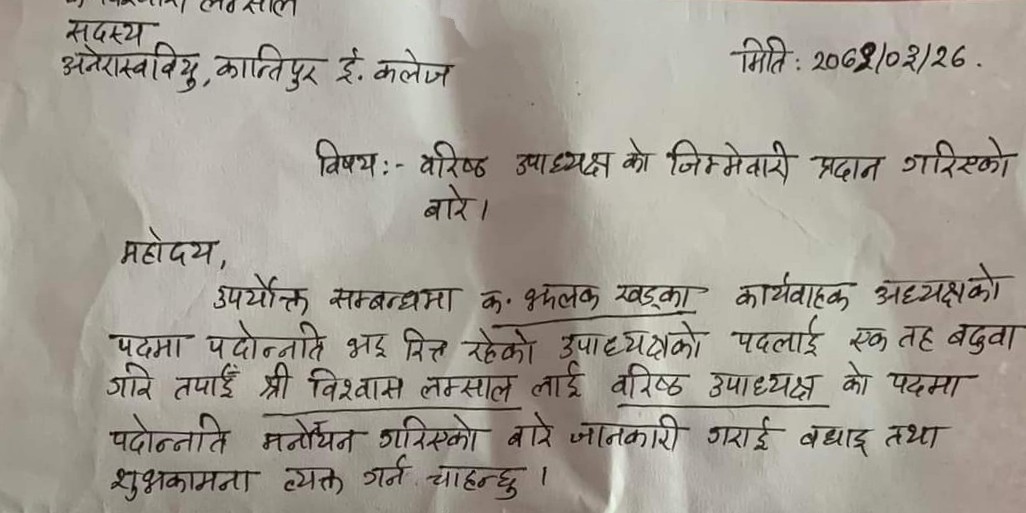 क. विश्वास लम्साल
सदस्य
अनेरास्ववियु, कान्तिपुर ई. कलेज
मिति : 2062/03/26.
विषय :- वरिष्ठ उपाध्यक्ष को जिम्मेवारी प्रदान गरिएको
बारे।
महोदय,
उपर्योक्त सम्बन्धमा क. झलक खड्का कार्यवाहक अध्यक्षको
पदमा पदोन्नति भइ रिक्त रहेको उपाध्यक्षको पदलाई एक तह बढुवा
गरि तपाईँ श्री विश्वास लम्साल लाई वरिष्ठ उपाध्यक्ष को पदमा
पदोन्नति मनोयन गरिएको बारे जानकारी गराई बधाइ तथा
शुभकामना व्यक्त गर्न चाहन्छु ।